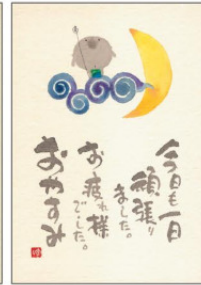 今日も一日
頑張り
ました。
お疲れ様
でした。
おやすみ